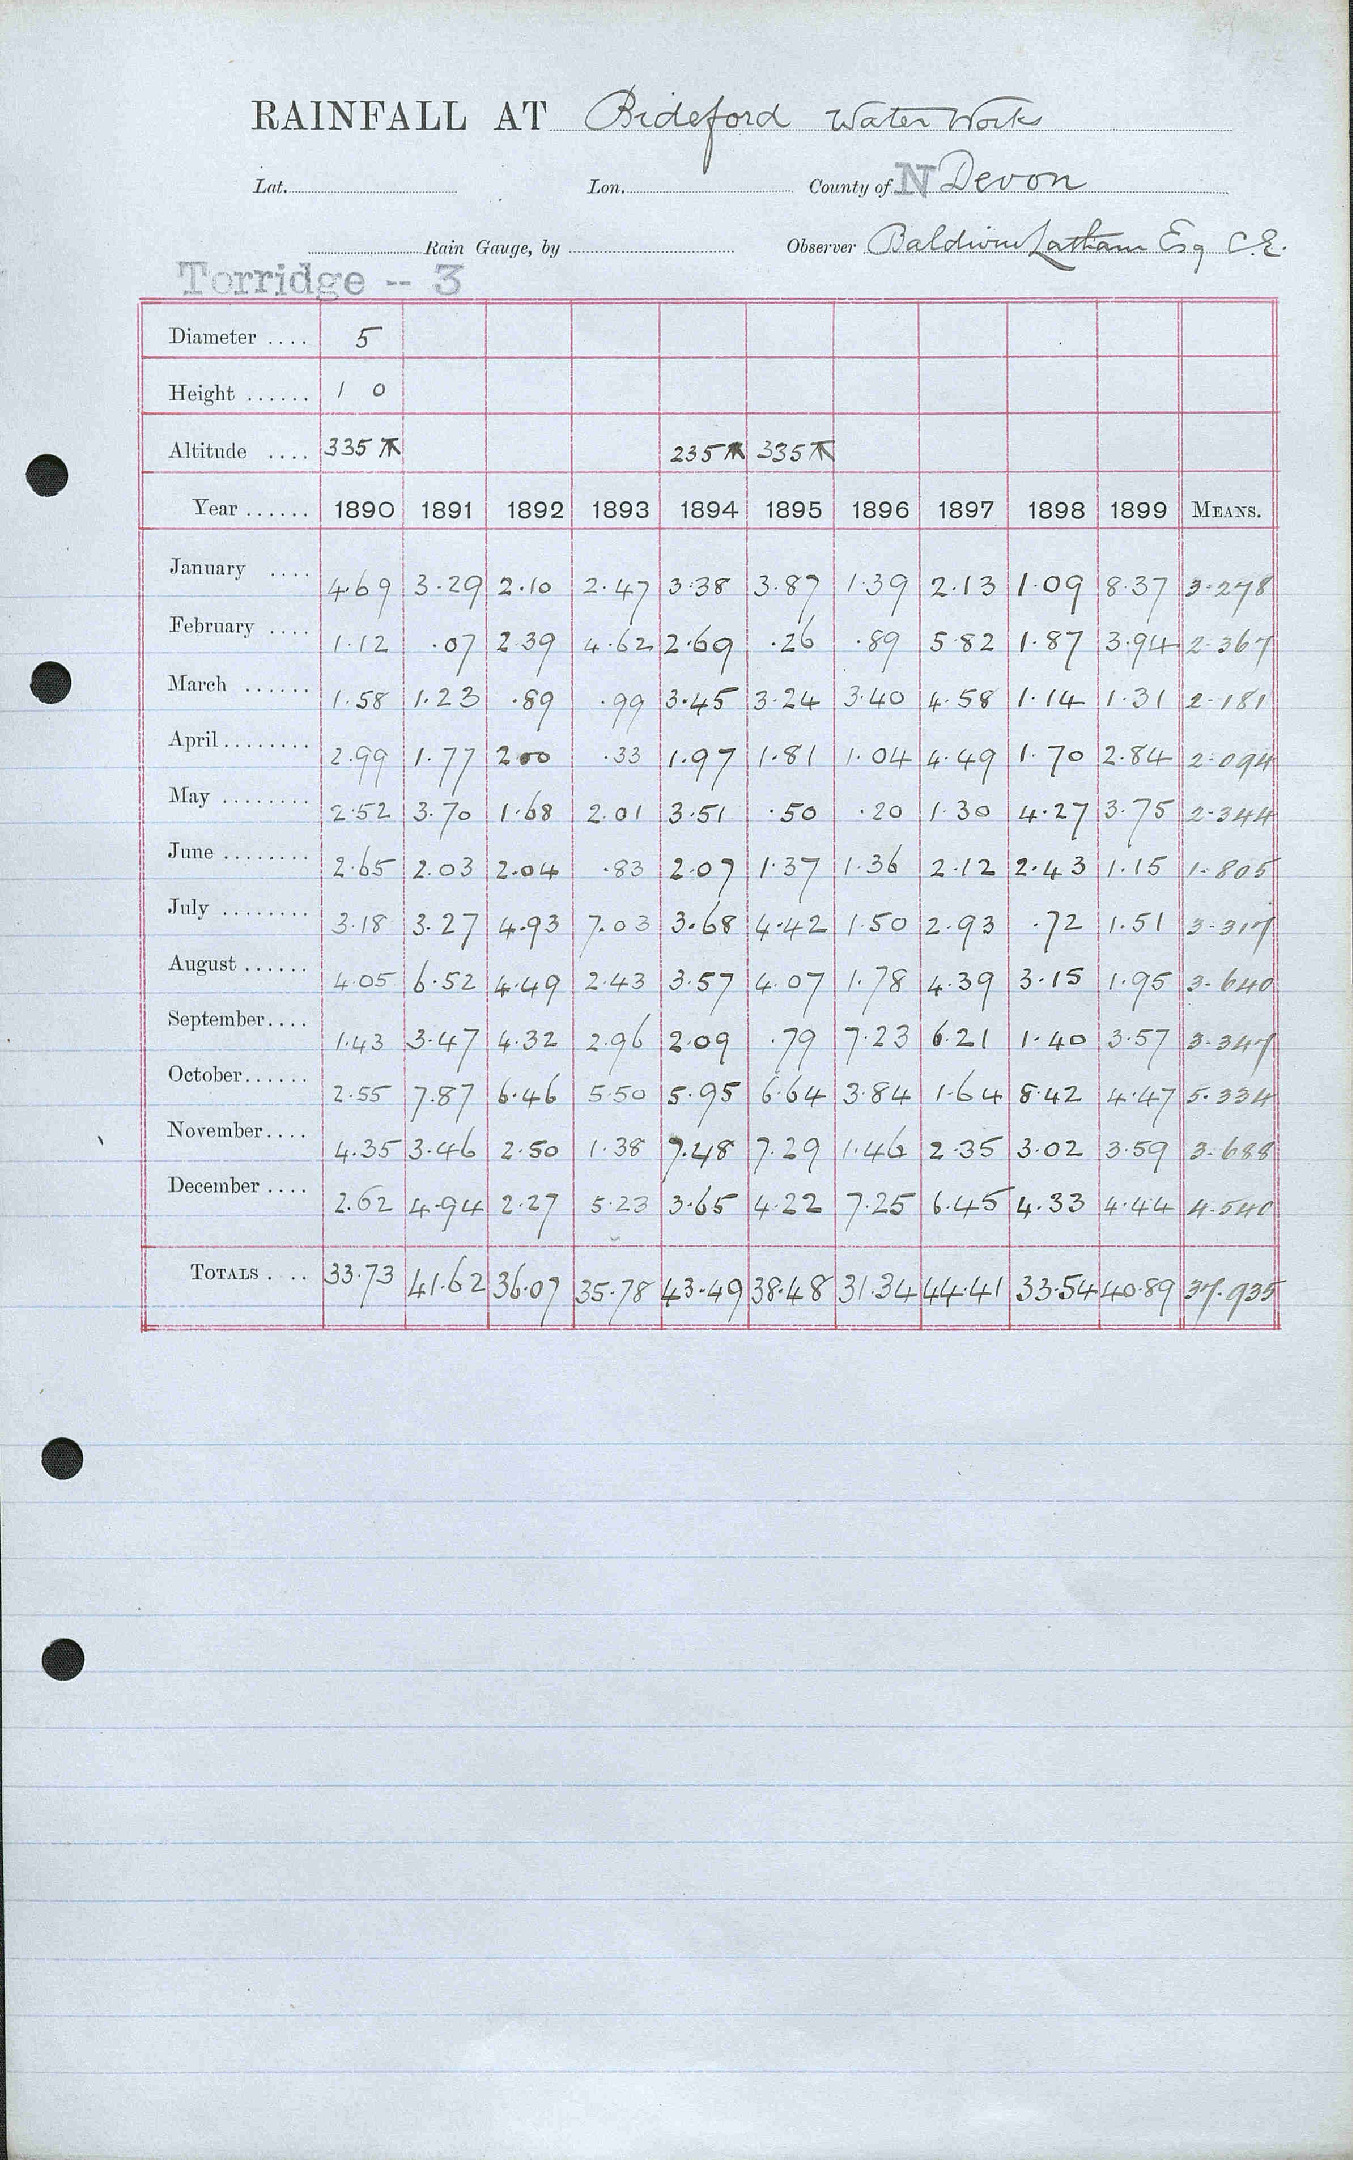 RAINFALL AT Bideford Water Works
Lat. Lon. County of N Devon
Rain Gauge, by Observer Baldwin Latham Esq C.E.
Torridge -- 3
Diameter .... 5
Height ...... 1 0
Altitude .... 335 235 335
Year ...... 1890 1891 1892 1893 1894 1895 1896 1897 1898 1899 MEANS.
January .... 4.69 3.29 2.10 2.47 3.38 3.87 1.39 2.13 1.09 8.37 3.278
February .... 1.12 .07 2.39 4.62 2.69 .26 .89 5.82 1.87 3.94 2.367
March ...... 1.58 1.23 .89 .99 3.45 3.24 3.40 4.58 1.14 1.31 2.181
April........ 2.99 1.77 2.00 .33 1.97 1.81 1.04 4.49 1.70 2.84 2.094
May ........ 2.52 3.70 1.68 2.01 3.51 .50 .20 1.30 4.27 3.75 2.344
June ........ 2.65 2.03 2.04 .83 2.07 1.37 1.36 2.12 2.43 1.15 1.805
July ........ 3.18 3.27 4.93 7.03 3.68 4.42 1.50 2.93 .72 1.51 3.317
August ...... 4.05 6.52 4.49 2.43 3.57 4.07 1.78 4.39 3.15 1.95 3.640
September.... 1.43 3.47 4.32 2.96 2.09 .79 7.23 6.21 1.40 3.57 3.347
October...... 2.55 7.87 6.46 5.50 5.95 6.64 3.84 1.64 8.42 4.47 5.334
November.... 4.35 3.46 2.50 1.38 7.48 7.29 1.46 2.35 3.02 3.59 3.688
December .... 2.62 4.94 2.27 5.23 3.65 4.22 7.25 6.45 4.33 4.44 4.540
TOTALS .... 33.73 41.62 36.07 35.78 43.49 38.48 31.34 44.41 33.54 40.89 37.935